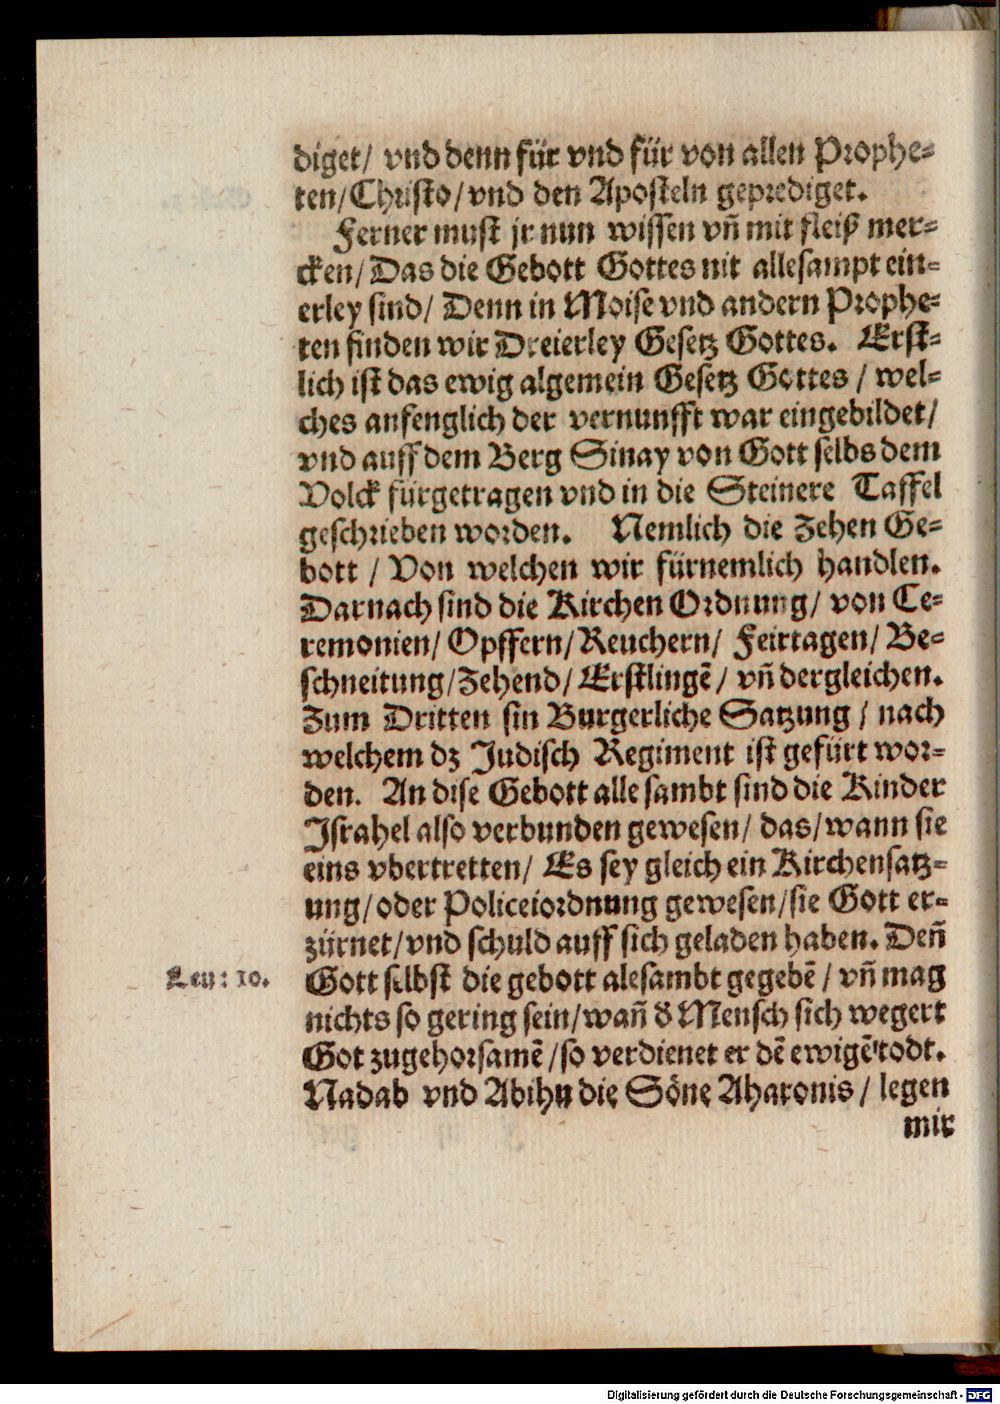 diget/ vnd denn für vnd für von allen Prophe-
ten/Christo/vnd den Aposteln geprediget.
Ferner must jr nun wissen vñ mit fleiß mer-
cken/Das die Gebott Gottes nit allesampt ein-
erley sind/ Denn in Moise vnd andern Prophe-
ten finden wir Dreierley Gesetz Gottes. Erst-
lich ist das ewig algemein Gesetz Gottes / wel-
ches anfenglich der vernunfft war eingebildet/
vnd auff dem Berg Sinay von Gott selbs dem
Volck fürgetragen vnd in die Steinere Taffel
geschrieben worden. Nemlich die Zehen Ge-
bott / Von welchen wir fürnemlich handlen.
Darnach sind die Kirchen Ordnung/ von Ce-
remonien/ Opffern/Reuchern/ Feirtagen/ Be-
schneitung/Zehend/ Erstlingē/ vñ dergleichen.
Zum Dritten sin Burgerliche Satzung / nach
welchem dz Judisch Regiment ist gefürt wor-
den. An dise Gebott alle sambt sind die Kinder
Israhel also verbunden gewesen/ das/wann sie
eins vbertretten/ Es sey gleich ein Kirchensatz-
ung/oder Policeiordnung gewesen/sie Gott er-
zürnet/vnd schuld auff sich geladen haben. Deñ
Leu: 10. Gott selbst die gebott alesambt gegebē/ vñ mag
nichts so gering sein/wañ ð Mensch sich wegert
Got zugehorsamē/so verdienet er dē ewigē todt.
Nadab vnd Abihu die Söne Aharonis/ legen
mir
Digitalisierung gefördert durch die Deutsche Forschungsgemeinschaft - DFG